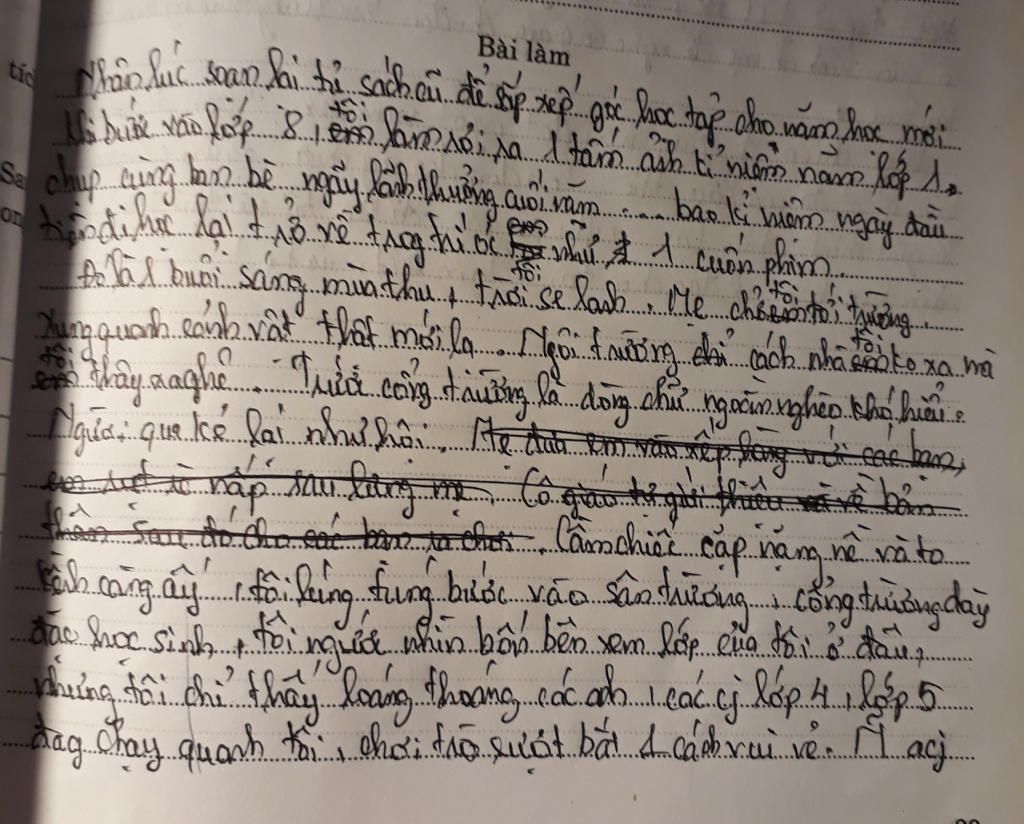 Bài làm
Nhân lúc soạn lại tủ sách cũ để sắp xếp góc học tập cho năm học mới
khi bước vào lớp 8, tôi làm rơi ra 1 tấm ảnh kỉ niệm năm lớp 1,
chụp cùng bạn bè ngày lãnh thưởng cuối năm .... bao kỉ niệm ngày đầu
tiên đi học lại trở về trog trí óc tôi như 1 cuốn phim
Đó là 1 buổi sáng mùa thu, trời se lạnh. Mẹ chở tôi tới trường.
Xung quanh cảnh vật thật mới lạ. Ngôi trường chỉ cách nhà tôi ko xa mà
tôi thấy xa ghê. Trước cổng trường là dòng chữ ngoằn nghèo khó hiểu.
Người qua kẻ lại như hội. Mẹ đưa em vào xếp hàng với các bạn,
em rụt rè nấp sau lưng mẹ. Cô giáo tự giới thiệu về bản
thân sau đó cho các bạn ra chơi. Cầm chiếc cặp nặng nề và to
kềnh càng ấy, tôi lúng túng bước vào sân trường, cổng trường dày
đặc học sinh, tôi ngước nhìn bốn bên xem lớp của tôi ở đâu,
nhưng tôi chỉ thấy loáng thoáng các anh, các cj lớp 4, lớp 5
đag chạy quanh tôi, chơi trò rượt bắt 1 cách vui vẻ.
tíc
Sa
on